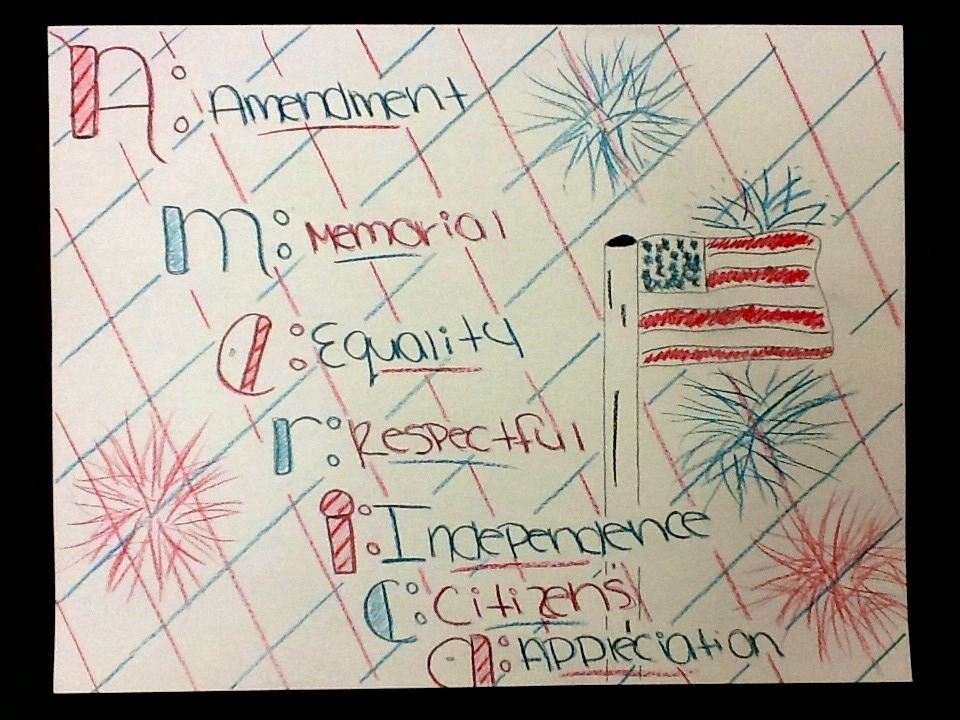 A: Amendment
m: Memorial
e: Equality
r: Respectful
i: Independence
C: Citizens
a: Appreciation